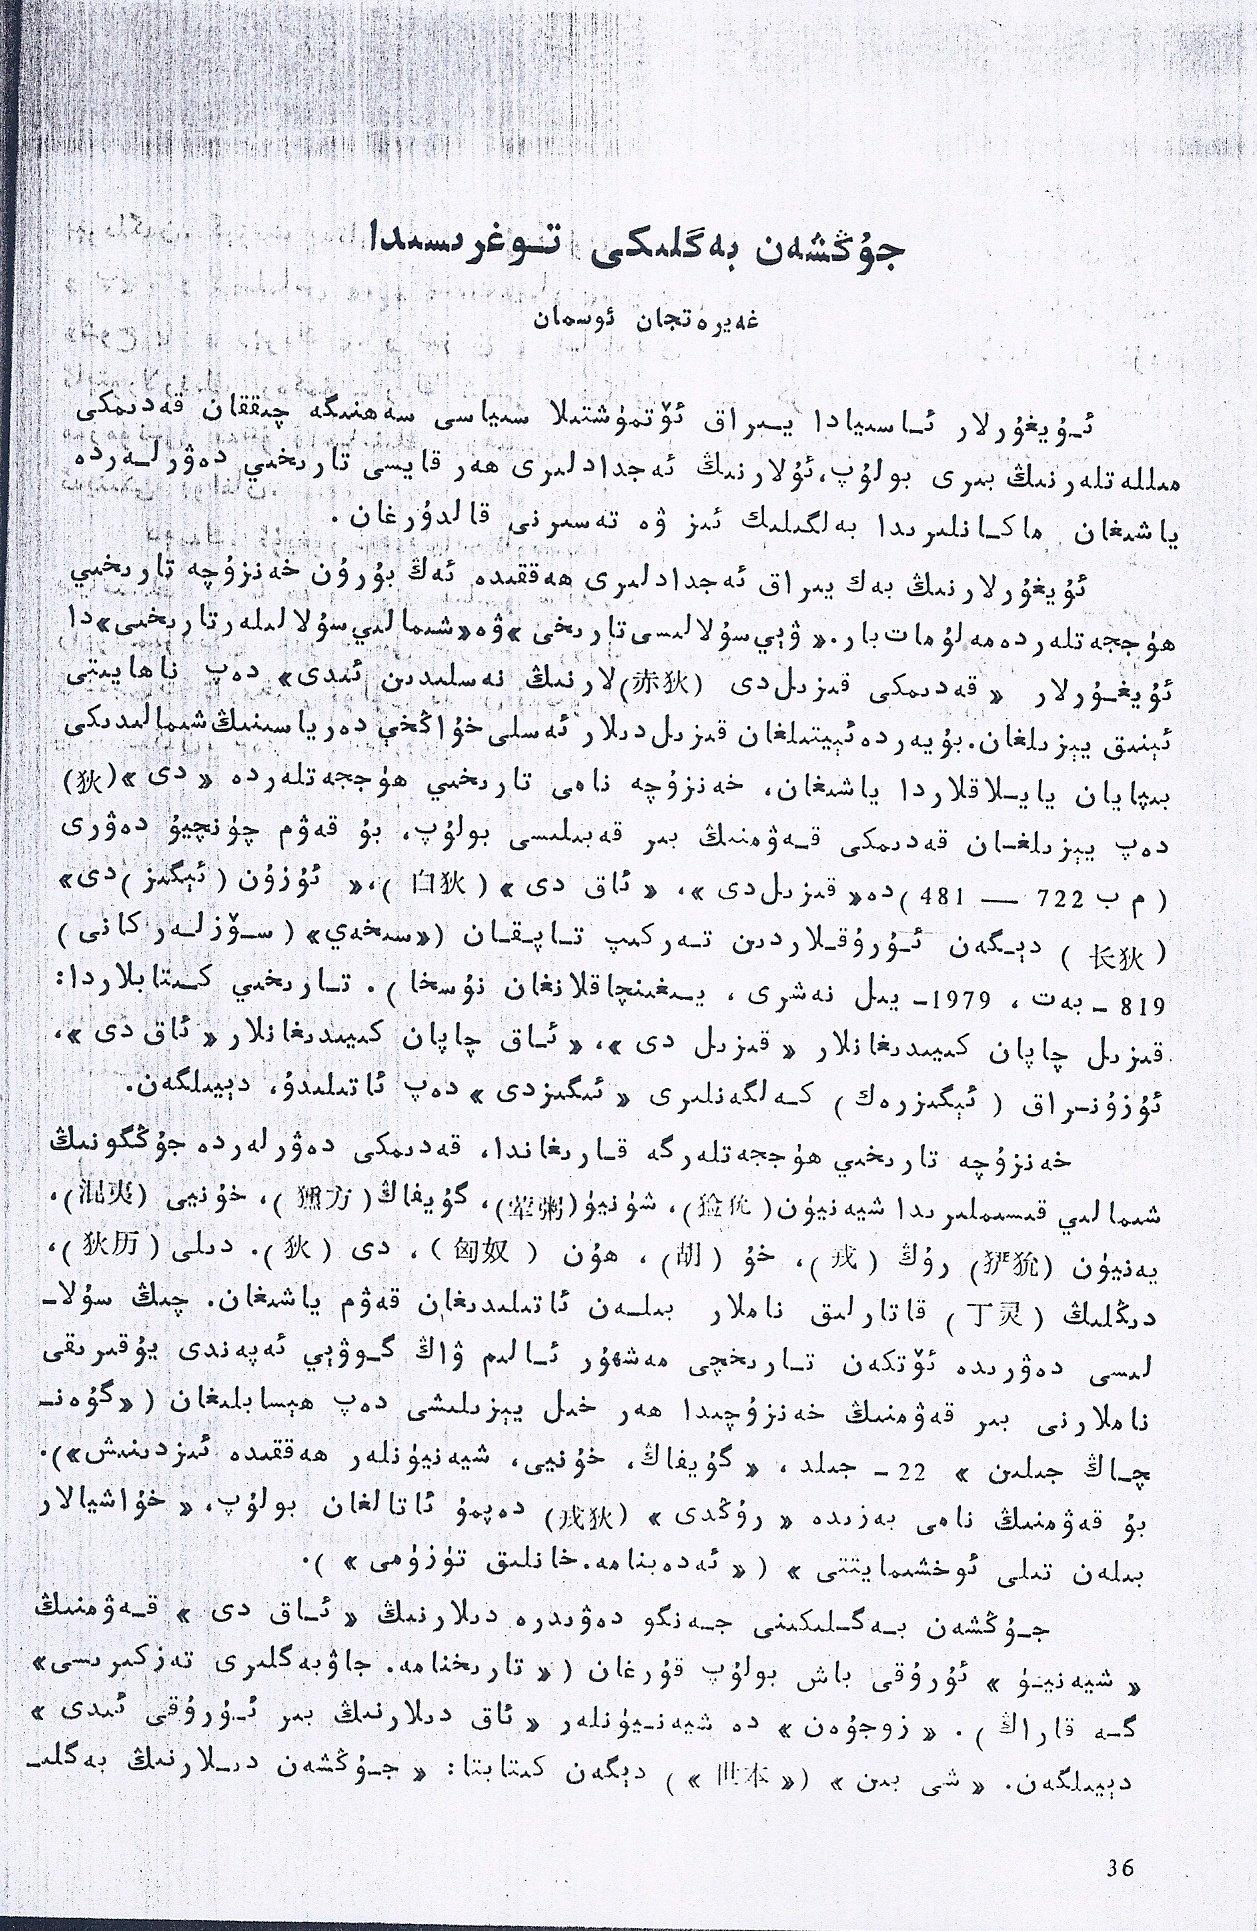 جۇڭشەن بەگلىكى توغرىسىدا
غەيرەتجان ئوسمان
ئۇيغۇرلار ئاسىيادا يىراق ئۆتمۈشتىلا سىياسى سەھنىگە چىققان قەدىمكى
مىللەتلەرنىڭ بىرى بولۇپ، ئۇلارنىڭ ئەجدادلىرى ھەر قايسى تارىخىي دەۋرلەردە
ياشىغان ماكانلىرىدا بەلگىلىك ئىز ۋە تەسىرنى قالدۇرغان.
ئۇيغۇرلارنىڭ بەك يىراق ئەجدادلىرى ھەققىدە ئەڭ بۇرۇن خەنزۇچە تارىخىي
ھۈججەتلەردە مەلۇمات بار. «ۋېي سۇلالىسى تارىخى» ۋە «شىمالىي سۇلالىلەر تارىخى» دا
ئۇيغۇرلار « قەدىمكى قىزىل دى (赤狄) لارنىڭ نەسلىدىن ئىدى» دەپ ناھايىتى
ئېنىق يېزىلغان. بۇ يەردە ئېيتىلغان قىزىل دىلار ئەسلى خۇاڭخې دەرياسىنىڭ شىمالىدىكى
بىپايان يايلاقلاردا ياشىغان، خەنزۇچە نامى تارىخىي ھۈججەتلەردە « دى » (狄)
دەپ يېزىلغان قەدىمكى قەۋمنىڭ بىر قەبىلىسى بولۇپ، بۇ قەۋم چۈنچيۇ دەۋرى
( م ب 722 — 481 ) دە « قىزىل دى »، « ئاق دى » ( 白狄 )،« ئۇزۇن ( ئېگىز ) دى»
( 长狄 ) دېگەن ئۇرۇقلاردىن تەركىپ تاپقان («سىخەي» ( سۆزلەر كانى )
819 ـ بەت ، 1979 ـ يىل نەشرى ، يىغىنچاقلانغان نۇسخا ) . تارىخىي كىتابلاردا:
قىزىل چاپان كىيىدىغانلار « قىزىل دى »، « ئاق چاپان كىيىدىغانلار « ئاق دى »،
ئۇزۇنراق ( ئېگىزرەك ) كەلگەنلىرى « ئىگىزدى » دەپ ئاتىلىدۇ، دېيىلگەن.
خەنزۇچە تارىخىي ھۈججەتلەرگە قارىغاندا، قەدىمكى دەۋرلەردە جۇڭگونىڭ
شىمالىي قىسىملىرىدا شيەنيۈن ( 猃狁 )، شۈنيۈ (荤粥)، گۇيفاڭ ( 方 )، خۇنيى (混夷)،
يەنيۈن (狁) رۇڭ ( 戎 )، خۇ ( 胡 ) ، ھۇن ( 匈奴 ) ، دى ( 狄 ). دىلى ( 狄历 )،
دىڭلىڭ ( 丁灵 ) قاتارلىق ناملار بىلەن ئاتىلىدىغان قەۋم ياشىغان. چىڭ سۇلاـ
لىسى دەۋرىدە ئۆتكەن تارىخچى مەشھۇر ئالىم ۋاڭ گوۋېي ئەپەندى يۇقىرىقى
ناملارنى بىر قەۋمنىڭ خەنزۇچىدا ھەر خىل يېزىلىشى دەپ ھېسابلىغان ( «گۇەنـ
چاڭ جىلىن » 22 ـ جىلد ، « گۇيفاڭ، خۇنيى، شيەنيۈنلەر ھەققىدە ئىزدىنىش»).
بۇ قەۋمنىڭ نامى بەزىدە « رۇڭدى » (戎狄) دەپمۇ ئاتالغان بولۇپ، « خۇاشيالار
بىلەن تىلى ئوخشىمايتتى » ( « ئەدەبنامە. خانلىق تۈزۈمى » ).
جۇڭشەن بەگلىكىنى جەنگو دەۋىدرە دىلارنىڭ « ئاق دى » قەۋمىنىڭ
« شيەنيۈ » ئۇرۇقى باش بولۇپ قۇرغان ( « تارىخنامە. جاۋ بەگلىرى تەزكىرىسى»
گە قاراڭ ) . « زوجۇەن » دە شيەنيۈنلەر « ئاق دىلارنىڭ بىر ئۇرۇقى ئىدى »
دېيىلگەن. « شى بىن » («世本» ) دېگەن كىتابتا: « جۇڭشەن دىلارنىڭ بەگلىـ
36